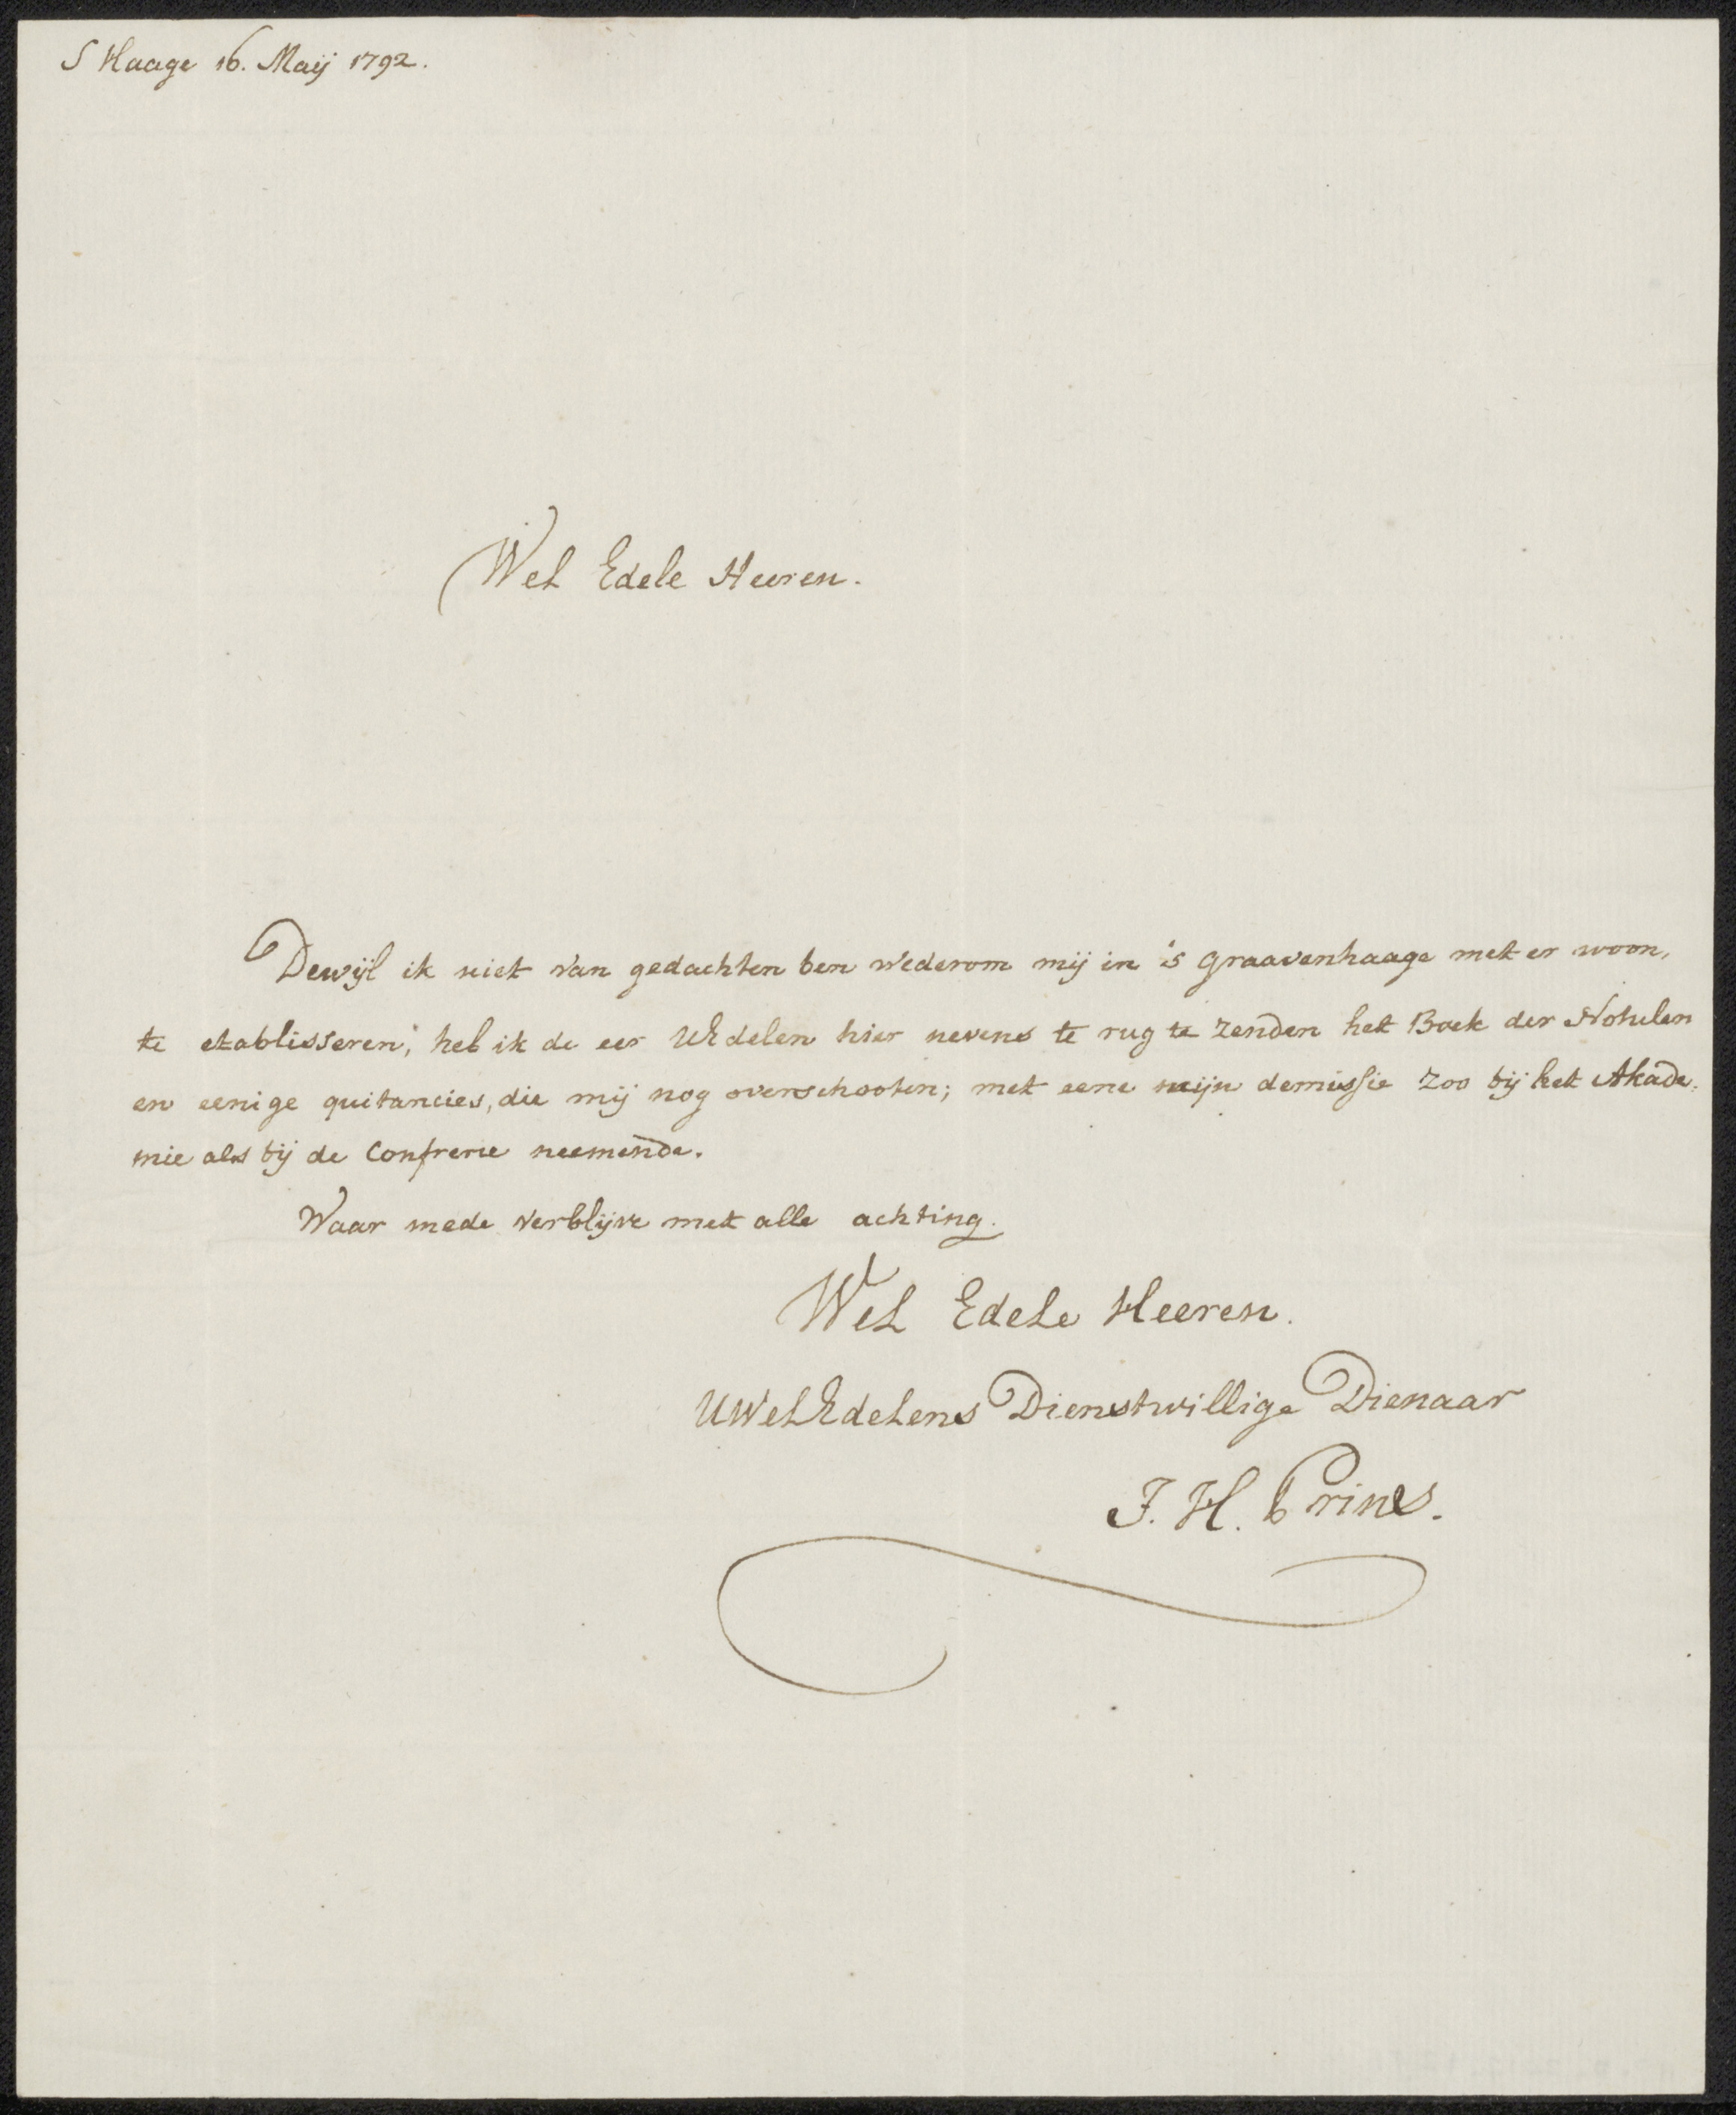 S Haage 16. Maij 1792.
Wel Edele Heeren.
Dewijl ik niet van gedachten ben wederom mij in 's Graavenhaage met er woon,
te etablisseren, heb ik de eer UEdelen hier nevens te rug te zenden het Boek der Notulen
en eenige quitancies, die mij nog overschooten; met eene mijn demissie zoo bij het Akade:
mie als bij de Confrerie neemende.
Waar mede verblijve met alle achting.
Wel Edele Heeren.
UWelEdelens Dienstwillige Dienaar
J. H. Prins.